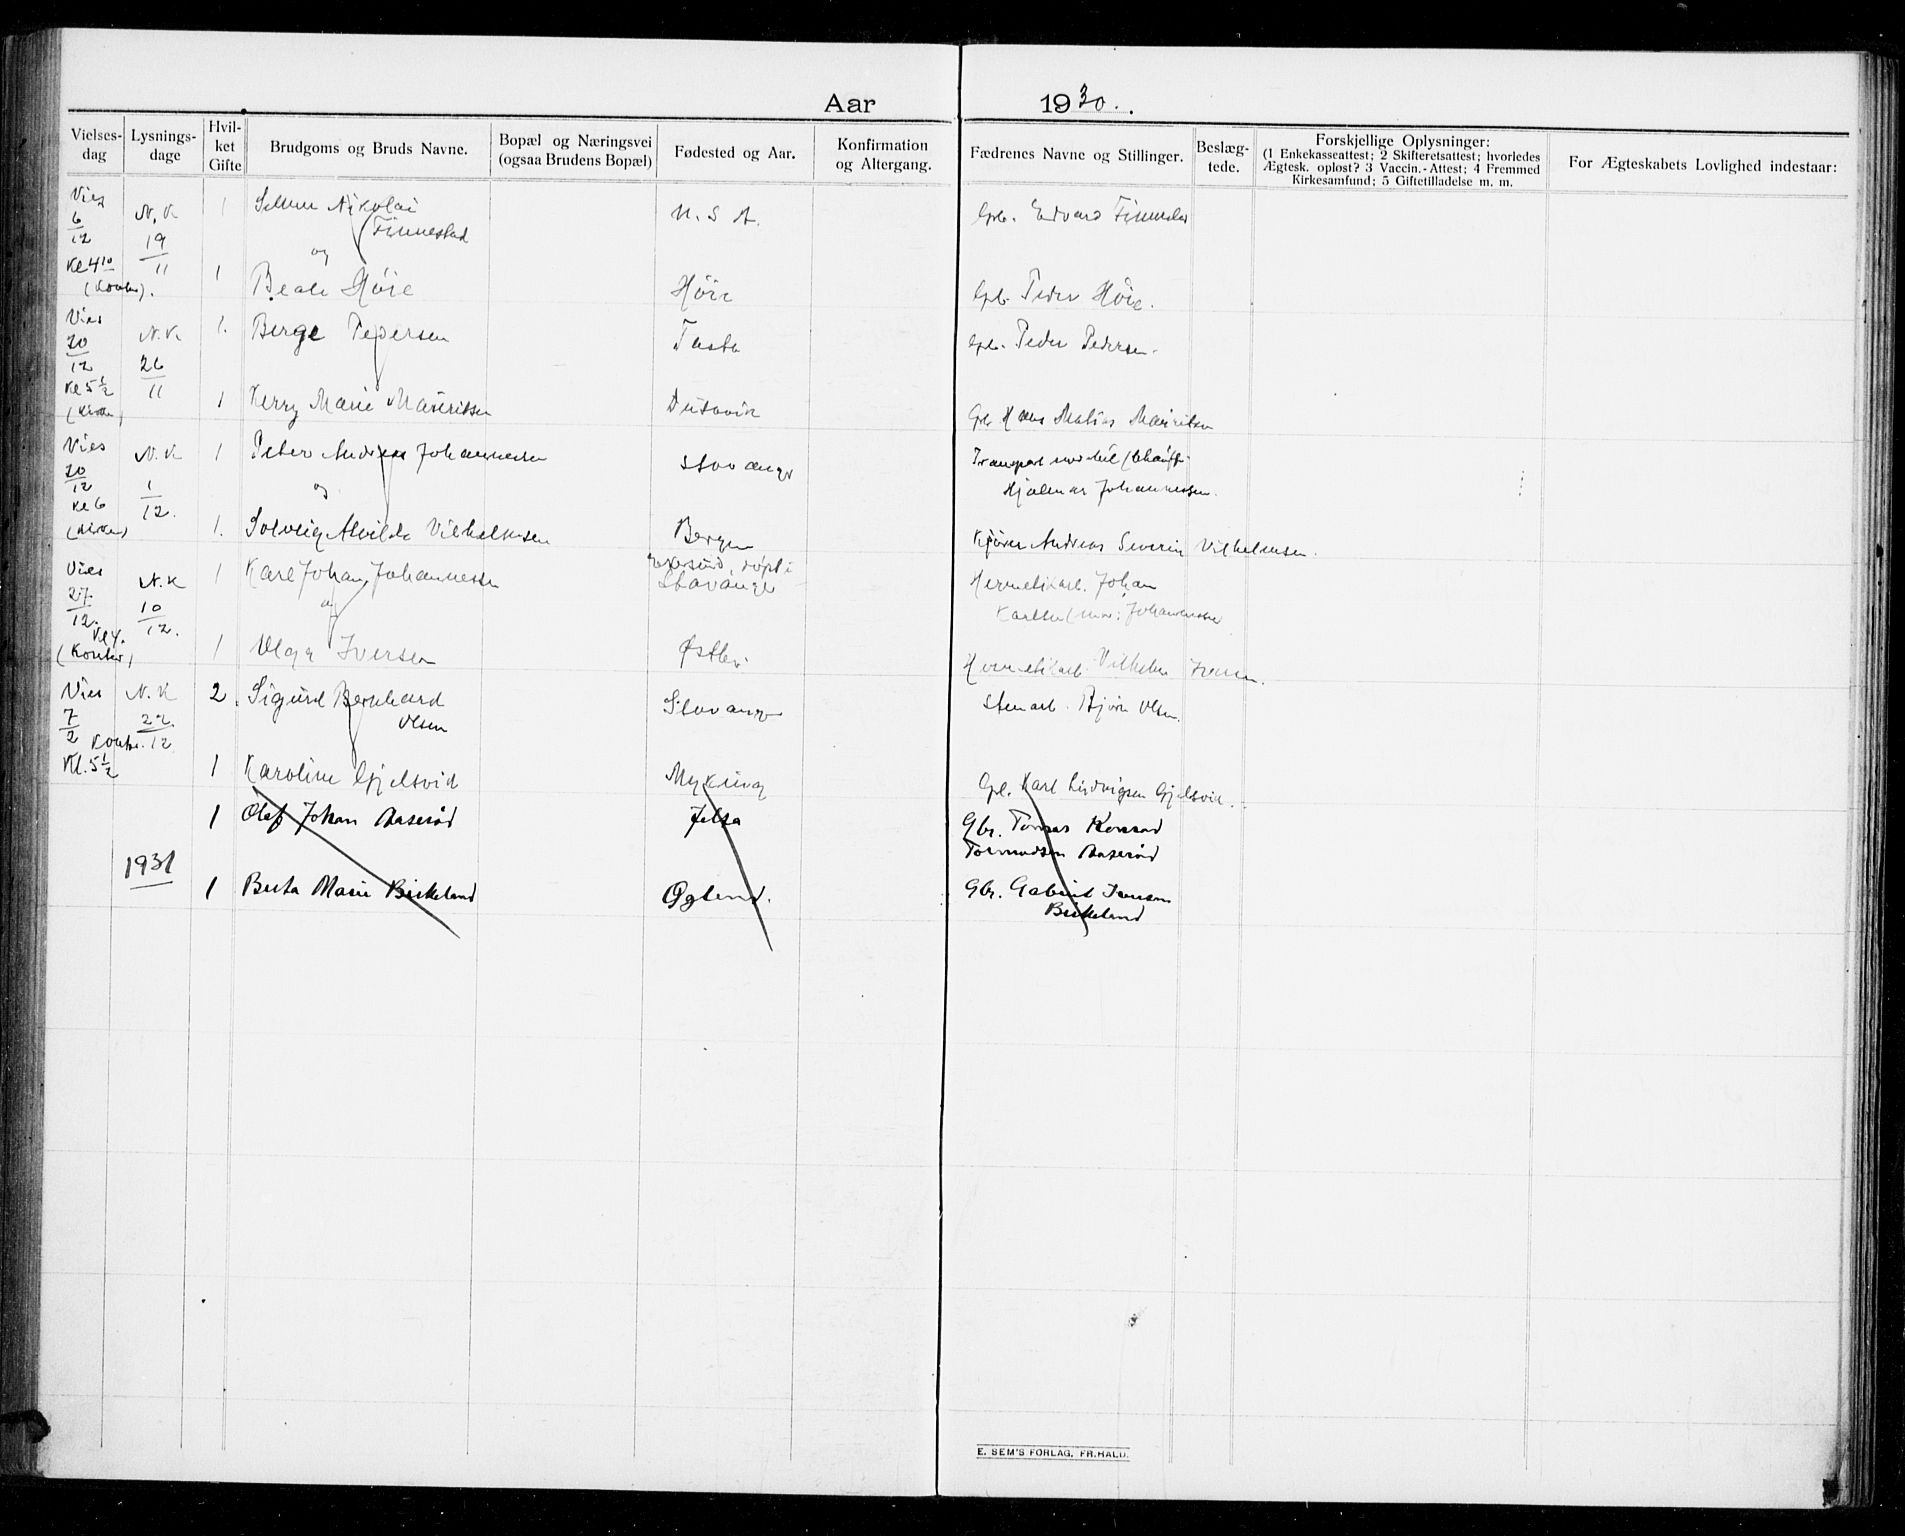 Aar 1930.
Vielsesdag
Lysningsdage
Hvilket Gifte
Brudgoms og Bruds Navne.
Bopæl og Næringsvei (ogsaa Brudens Bopæl)
Fødested og Aar.
Konfirmation og Altergang.
Fædrenes Navne og Stillinger.
Beslægtede.
Forskjellige Oplysninger:
(1 Enkekasseattest; 2 Skifteretsattest; hvorledes
Ægtesk. opløst? 3 Vaccin.-Attest; 4 Fremmed
Kirkesamfund; 5 Giftetilladelse m. m.
For Ægteskabets Lovlighed indestaar:
Vies 6/12 N.K 19/11 1 Nikolai U.S.A. Gbr. Edvard
Finnestad
og
Kl 4 10 (Kontor). 1 Beate Høie Høie Gbr. Peder Høie.
Vies 20/12 N.K 26/11 1. Berge Pedersen Tasta Gbr. Peder Pedersen.
Kl 5 1/2 1 Kerry Marie Mauritsen Dusavik Gbr. Hans Matias Mauritsen
Vies 20/12 N.K 1/12. 1 Peter Andreas Johannessen Stavanger
Hjalmar Johannessen.
og
Kl 6 1. Solveig Alvilde Vilhelmsen Bergen Kjører Andreas Severin Vilhelmsen.
Vies 27/12. N.K 10/12. 1 Karl Johan Johannessen Egersund, døpt i Stavanger Hermetikarb. Johan
Karlsen (mor: Johannessen
og
Kl 4. (Kontor) 1 Olga Iversen Hermetikarb. Vilhelm Iversen.
Vies 7/2 N.K 22/12 2. Sigurd Bernhard Stavanger Stenarb. Bjørn Olsen.
Olsen
Kontor.
Kl. 5 1/2 1 Karoline Gjelsvik Gbr. Karl Ludvigsen Gjelsvik.
1 Olaf Johan Aaserød Jelsa Gbr. Tomas Konrad
Tormodsen Aaserød
1931
1 Berta Marie Birkeland Ogland. Gbr. Gabriel
Birkeland
E. SEM'S FORLAG, FR.HALD.